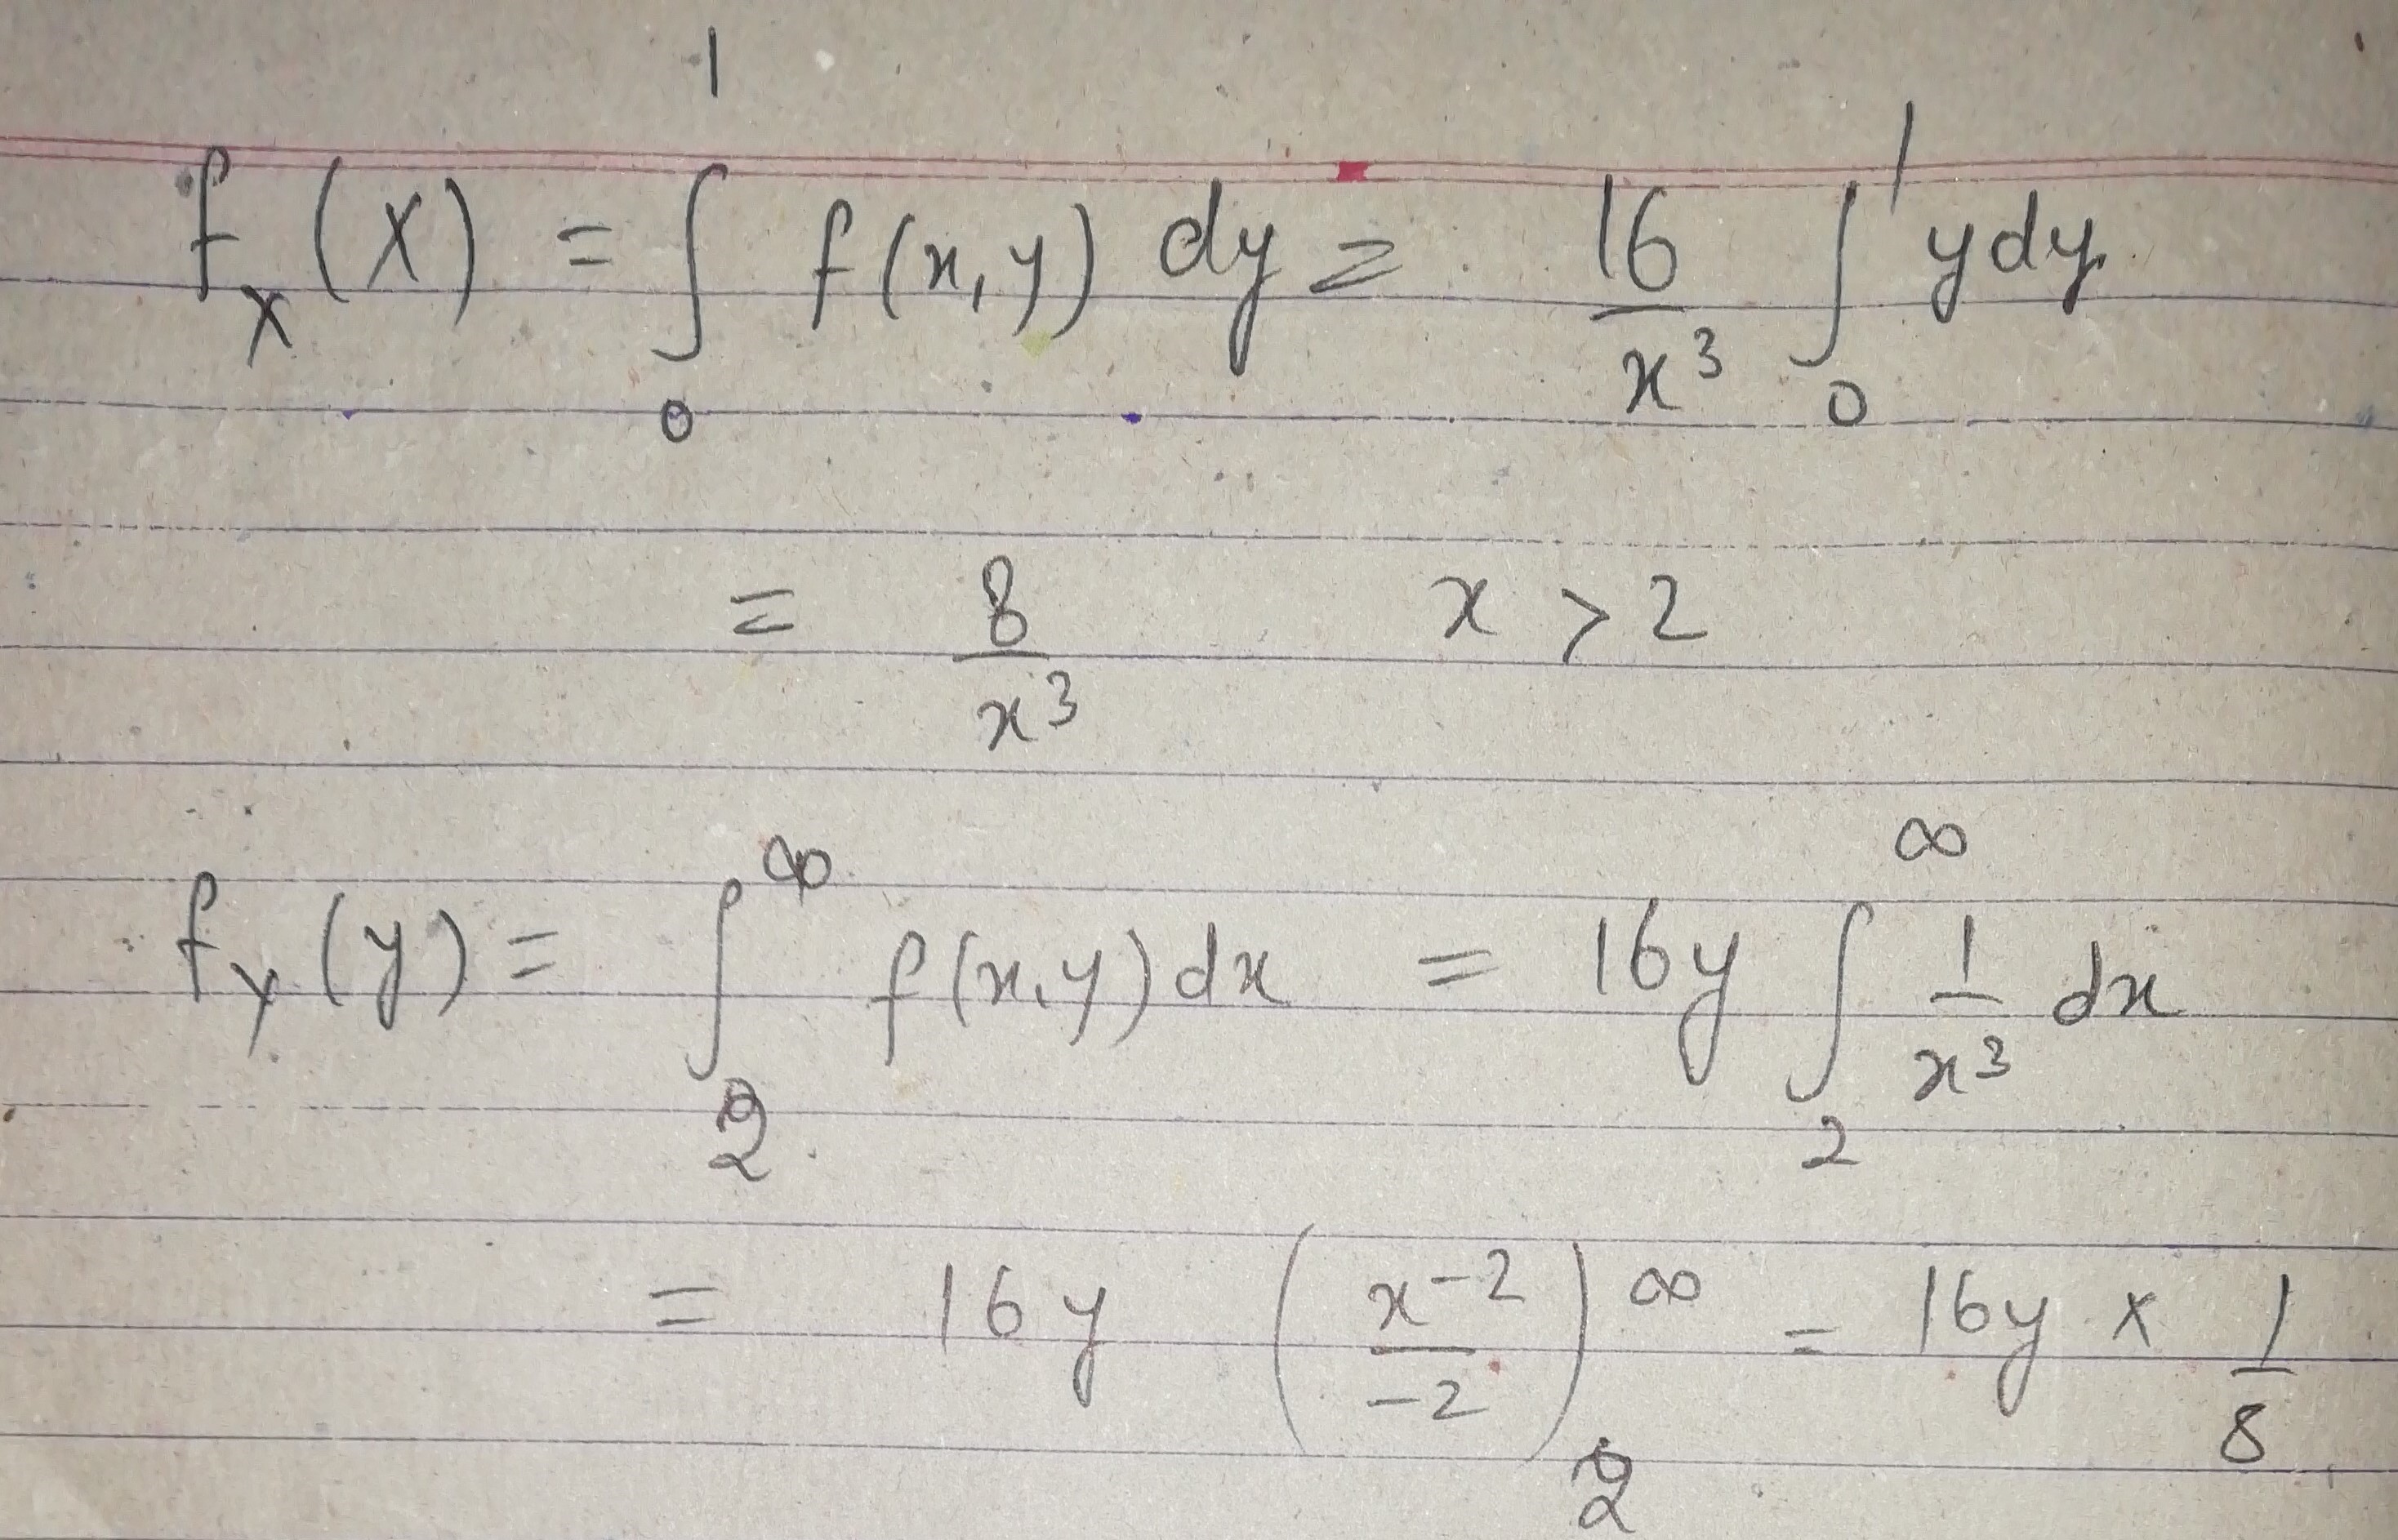 f_X(x) = ∫_0^1 f(x,y) dy = 16/x^3 ∫_0^1 y dy
= 8/x^3 x > 2
f_Y(y) = ∫_2^∞ f(x,y) dx = 16y ∫_2^∞ 1/x^3 dx
= 16y (x^-2/-2)_2^∞ = 16y × 1/8